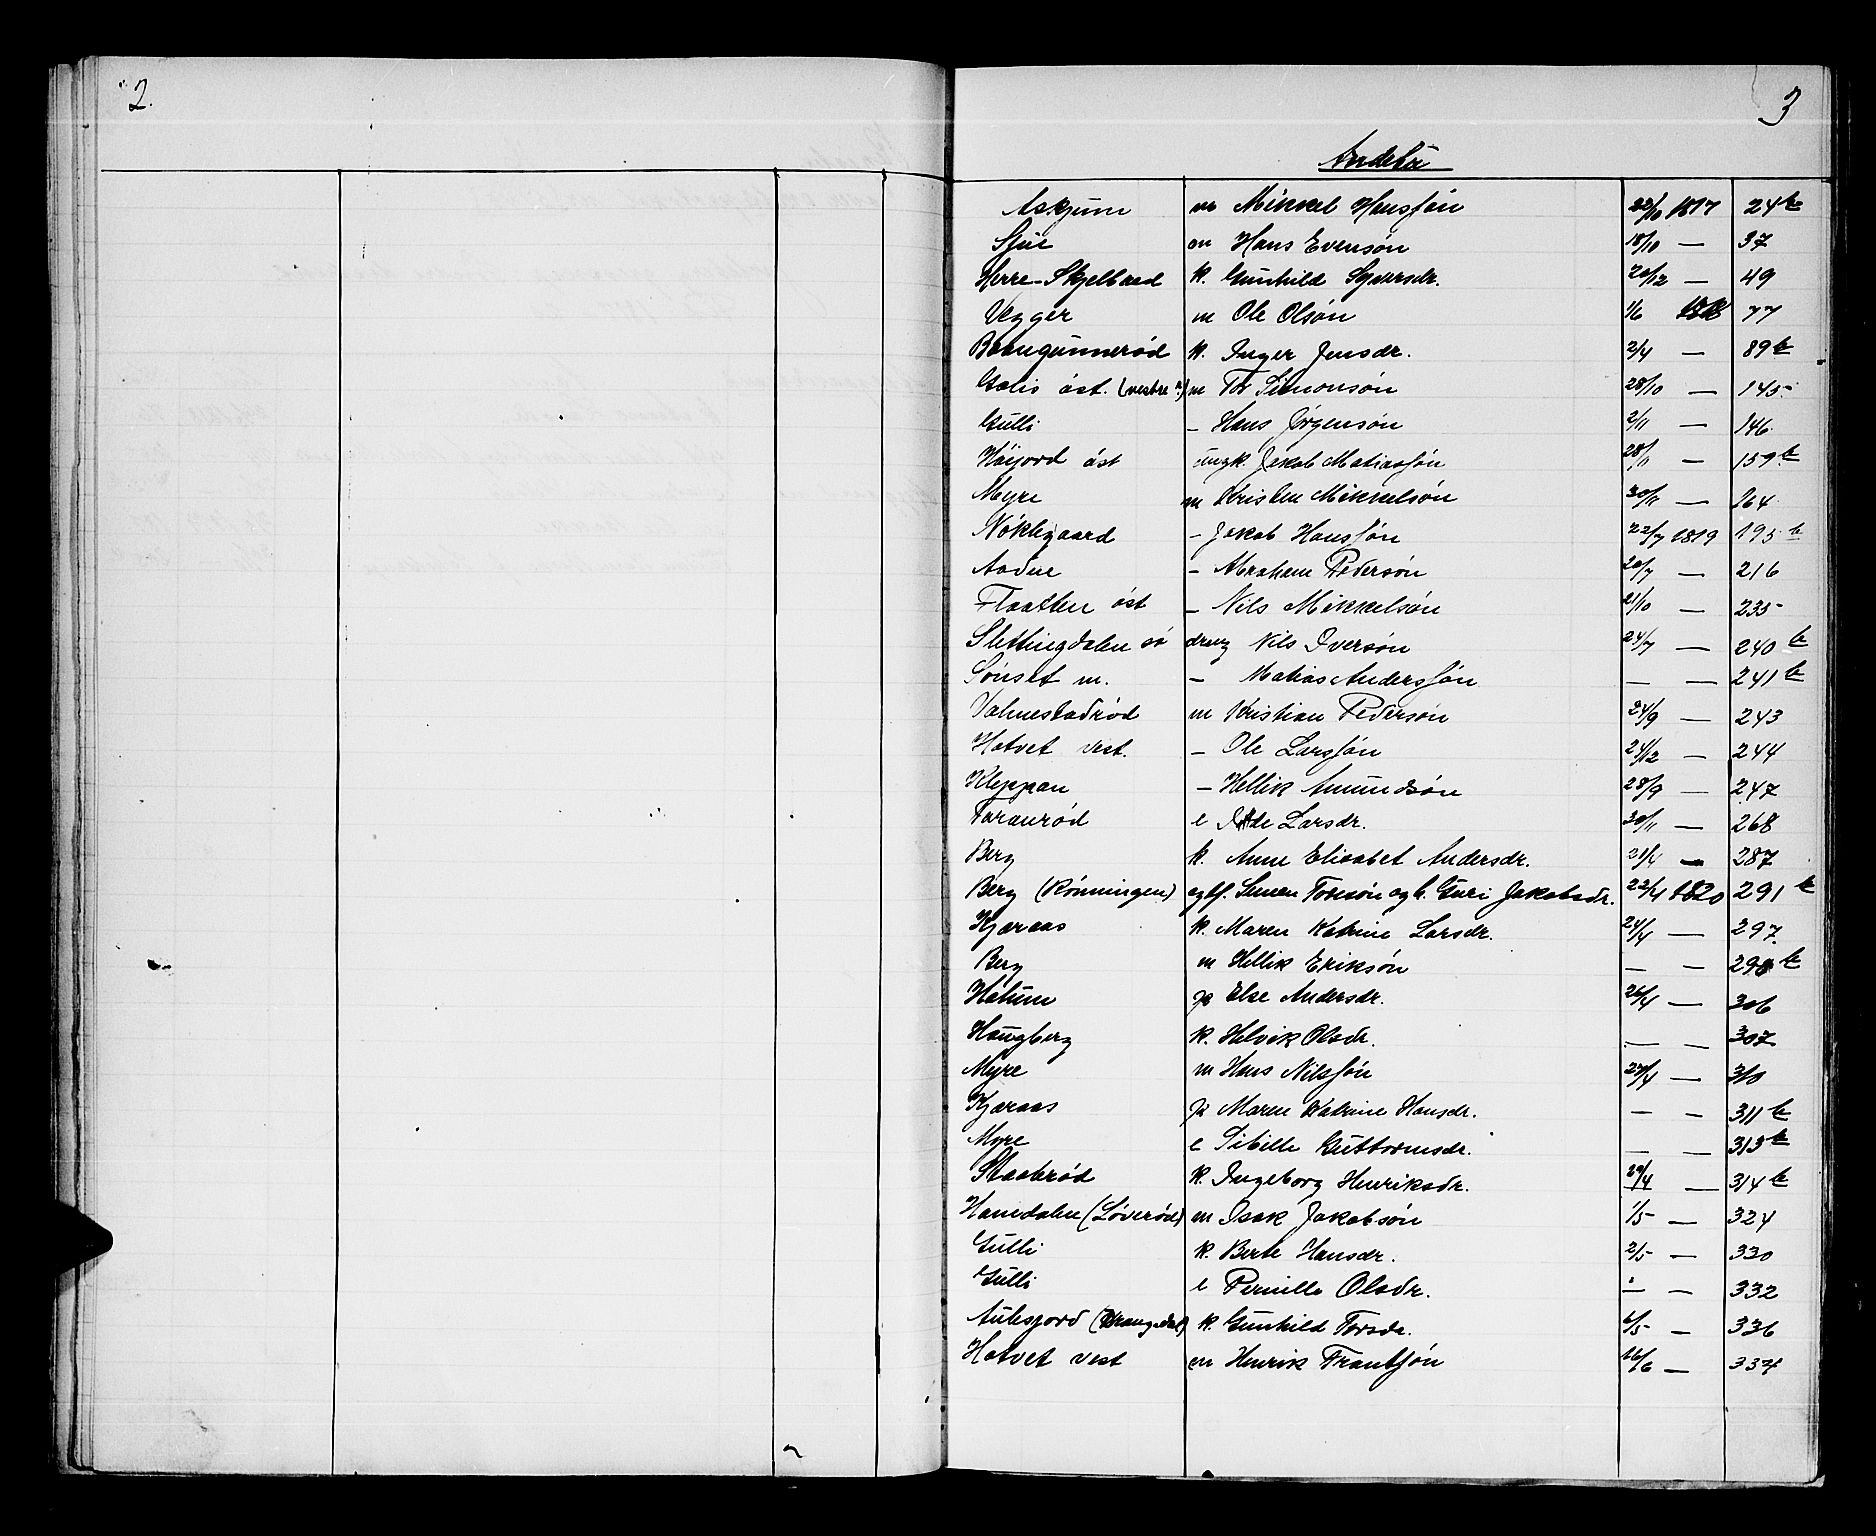 2.
3
Andebu
Askjum m Mikkel Hanssøn 22/10 1817 24 b
m Hans Evensøn 18/10 — 37
Herre-Skjelbred k. Gunhild Sjversdr. 20/12 — 49
Vegger m Ole Olsøn 1/6 1818 77
Baangunnerød k. Inger Jensdr. 2/4 — 89 b
Gælis øst. (vestre?) m Tor Simonsøn 28/10 — 145
Gulli — Hans Jørgensøn 2/11 — 146
Høijord øst ungk. Jakob Matiassøn 28/11 — 159 b
Myre m Kristen Mikkelsøn 30/11 — 164
Nøklegaard — Jakob Hanssøn 22/7 1819 195 b
Aadne — Abraham Pedersøn 20/7 — 216
Flaatten øst — Nils Mikkelsøn 21/10 — 235
Slettingdalen sø dreng Nils Iversøn 24/7 — 240 b
Sønset m. — Matias Anderssøn — — 241 b
Valmestadrød m Kristian Pedersøn 24/9 — 243
Hotvet vest. — Ole Larssøn 24/12 — 244
Kleppan — Hellik Amundsøn 28/9 — 247
Taranrød e Ide Larsdr. 30/11 — 268
Berg k. Anne Elisabet Andersdr. 21/4 — 287
Berg (Rønningen) Simen Tormøn og h. Guri Jakobsdr. 22/4 1820 291 b
Kjæraas k. Maren Katrine Larsdr. 24/4 — 297.
Berg m Hellik Eriksøn — — 298 b
Hatum p Else Andersdr. 26/4 — 306
Haugberg k. Helvik Olsdr. — — 307
Myre m Hans Nilssøn 27/4 — 310
Kjæraas p Maren Katrine Hansdr. — — 311 b
Myre e Sibille Guttormsdr. — — 313 b
Staabrød k. Ingeborg Henriksdr. 29/4 — 314 b
Hanedalen (Løverød) m Isak Jakobsøn 1/5 — 324
Gulli k. Berte Hansdr. 2/5 — 330
Gulli e Pernille Olsdr. — — 332
Aulesjord (Trangedal) k. Gunhild Torsdr. 6/5 — 336
Hotvet vest m Henrik Frantssøn 16/6 — 337